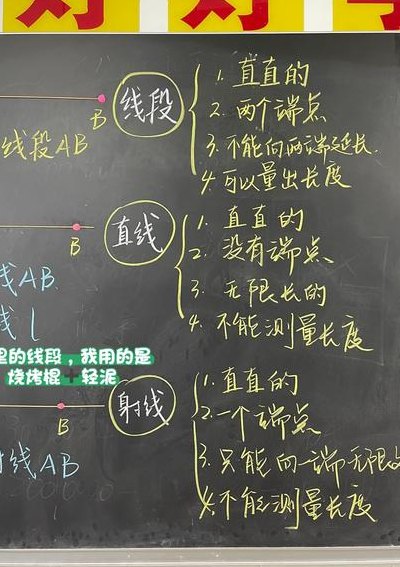 B
线段AB
线段
1. 直直的
2. 两个端点
3. 不能向两端延长.
4. 可以量出长度
B
线AB
线l
直线
1. 直直的
2. 没有端点
3. 无限长的
4. 不能测量长度
里的线段，我用的是
烧烤棍➕轻泥
B
射线AB
射线
1. 直直的
2. 一个端点
3. 只能向一端无限
4. 不能测量长度